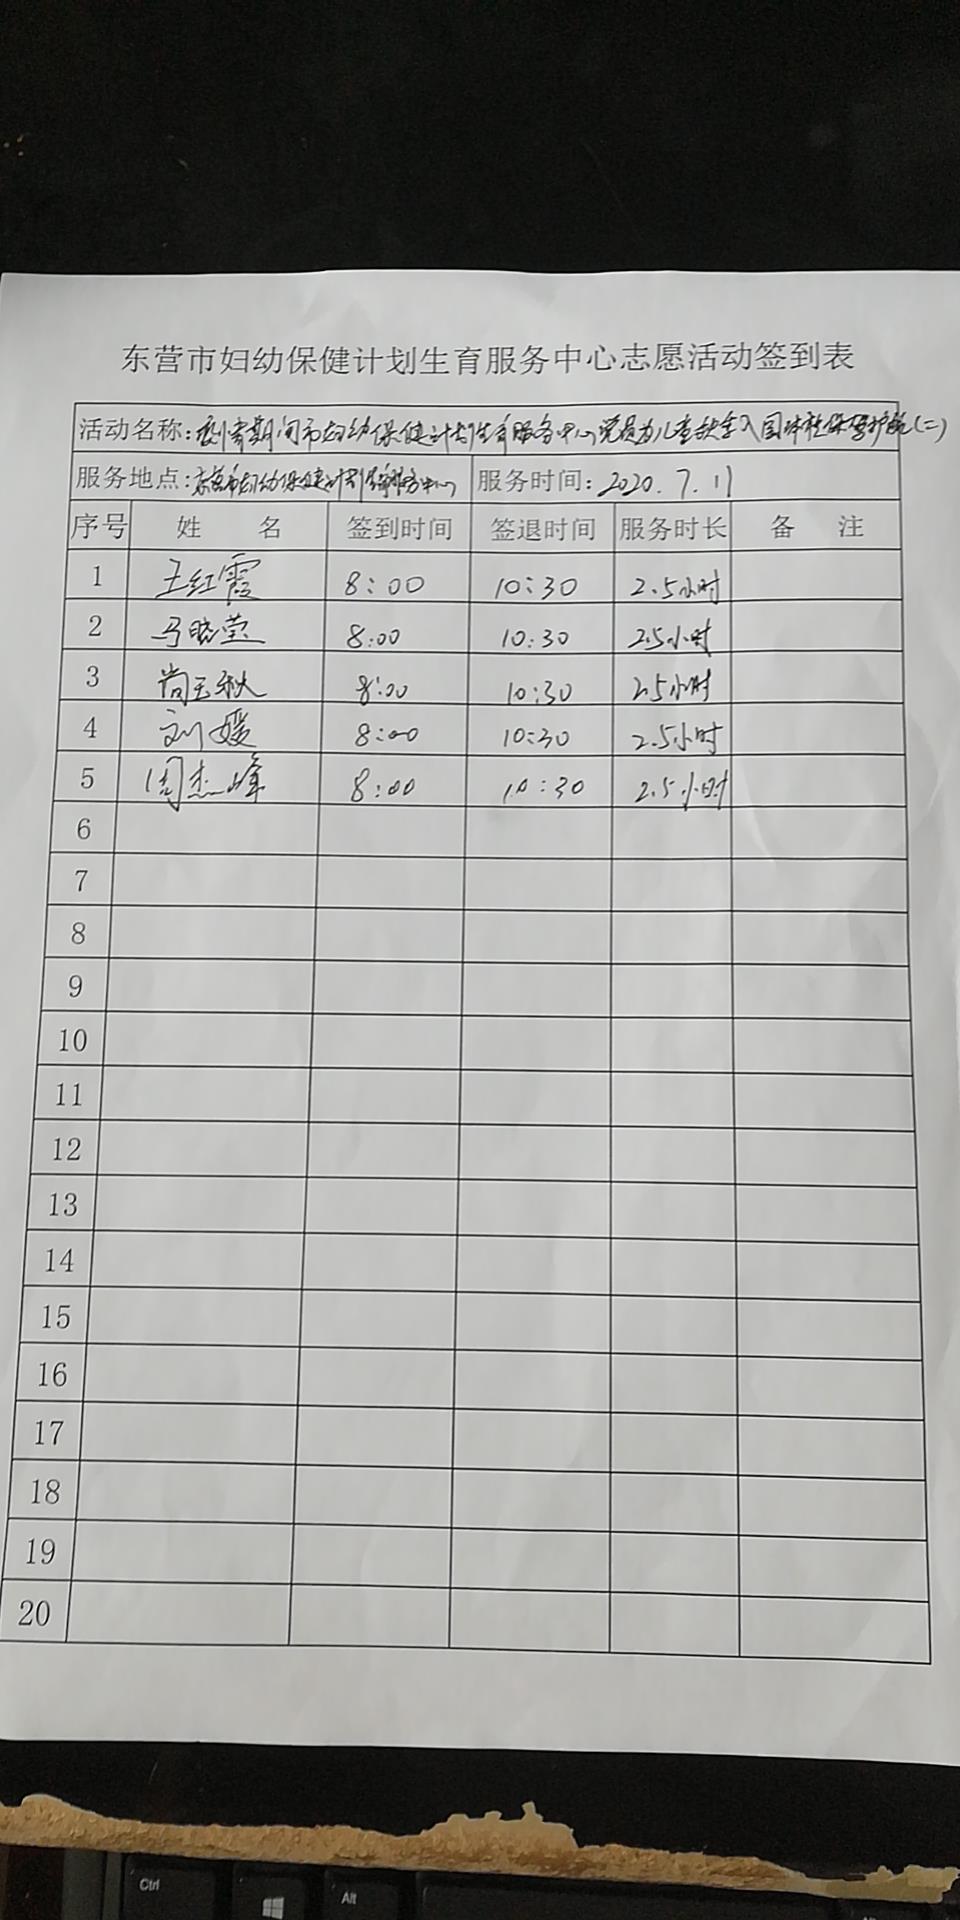 东营市妇幼保健计划生育服务中心志愿活动签到表
活动名称:暑期间市妇幼保健计划生育服务中心党员为儿童入园体检保驾护航(二)
服务地点:东营市妇幼保健计划生育服务中心 服务时间:2020.7.11
序号 姓 名 签到时间 签退时间 服务时长 备 注
1 王红霞 8:00 10:30 2.5小时
2 马晓莹 8:00 10:30 2.5小时
3 尚玉秋 8:00 10:30 2.5小时
4 刘媛 8:00 10:30 2.5小时
5 周杰峰 8:00 10:30 2.5小时
6
7
8
9
10
11
12
13
14
15
16
17
18
19
20
Ctrl Alt